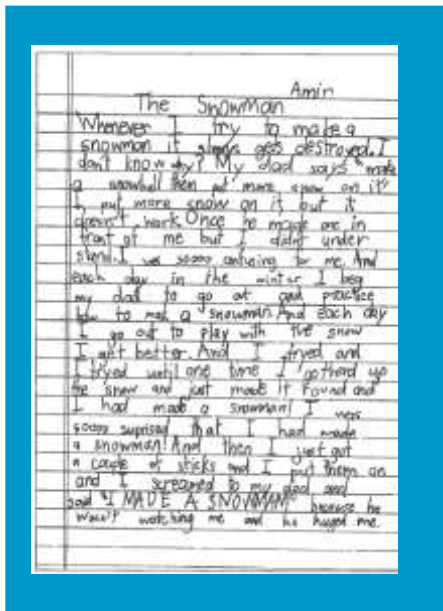 Amin
The Snowman
Whenever I try to make a
snowman it always gets destroyed. I
don't know why? My dad says "make
a snowball then put more snow on it"
I put more snow on it but it
doesn't work. Once he made one in
front of me but I didnt under
stand. I was soooo confusing for me. And
each day in the winter I beg
my dad to go out and practice
how to make a snowman. And each day
I go out to play with the snow
I get better. And I tryed and
I tryed until one time I
the snow and just made it round and
I had made a snowman! I was
soooo suprised that I had made
a snowman! And then I just got
a couple of sticks and I put them on
and I screamed to my dad and
said "I MADE A SNOWMAN" because he
wasn't watching me and he hugged me.